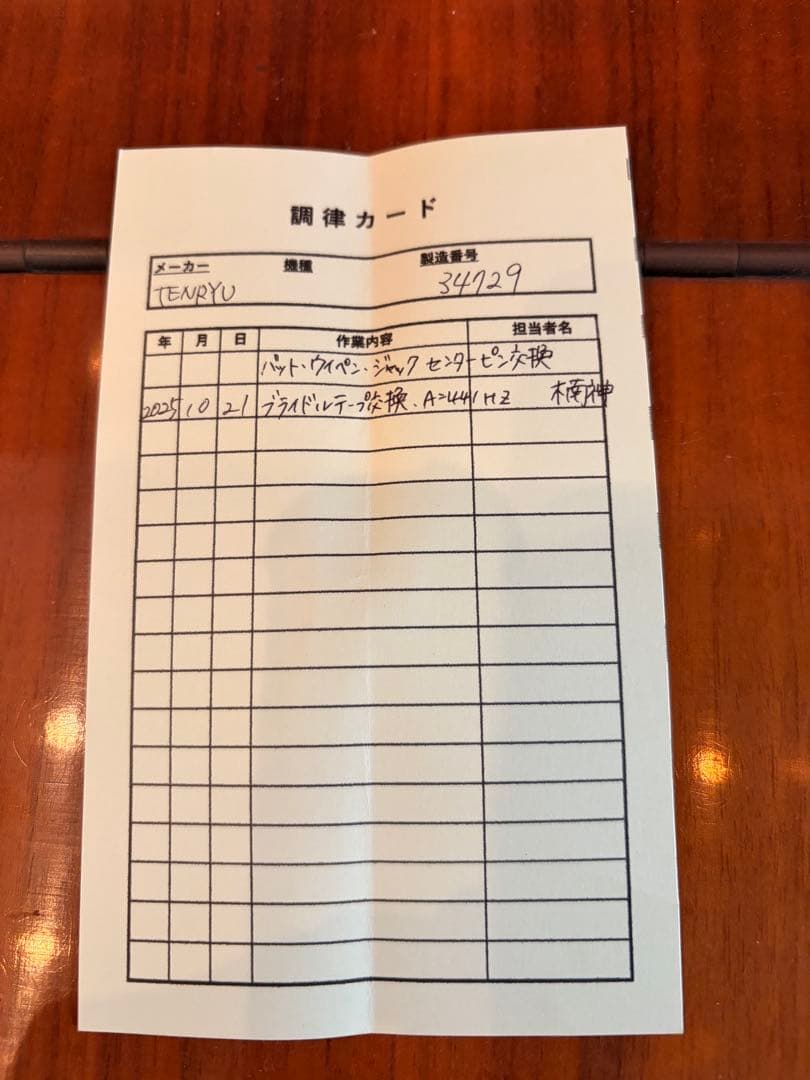 調律カード
メーカー 機種 製造番号
TENRYU 34729
年 月 日 作業内容 担当者名
バット・ウイペン・ジャック センターピン交換
2025 10 21 ブライドルテープ交換、A=441Hz 楠神